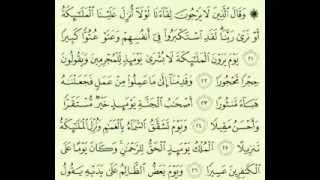 ۞ وَقَالَ ٱلَّذِينَ لَا يَرْجُونَ لِقَآءَنَا لَوْلَآ أُنزِلَ عَلَيْنَا ٱلْمَلَٰٓئِكَةُ
أَوْ نَرَىٰ رَبَّنَا لَقَدِ ٱسْتَكْبَرُوا۟ فِىٓ أَنفُسِهِمْ وَعَتَوْ عُتُوًّا كَبِيرًا
٢١ يَوْمَ يَرَوْنَ ٱلْمَلَٰٓئِكَةَ لَا بُشْرَىٰ يَوْمَئِذٍ لِّلْمُجْرِمِينَ وَيَقُولُونَ
حِجْرًا مَّحْجُورًا ٢٢ وَقَدِمْنَآ إِلَىٰ مَا عَمِلُوا۟ مِنْ عَمَلٍ فَجَعَلْنَٰهُ
هَبَآءً مَّنثُورًا ٢٣ أَصْحَٰبُ ٱلْجَنَّةِ يَوْمَئِذٍ خَيْرٌ مُّسْتَقَرًّا
وَأَحْسَنُ مَقِيلًا ٢٤ وَيَوْمَ تَشَقَّقُ ٱلسَّمَآءُ بِٱلْغَمَٰمِ وَنُزِّلَ ٱلْمَلَٰٓئِكَةُ
تَنزِيلًا ٢٥ ٱلْمُلْكُ يَوْمَئِذٍ ٱلْحَقُّ لِلرَّحْمَٰنِ وَكَانَ يَوْمًا عَلَى
ٱلْكَٰفِرِينَ عَسِيرًا ٢٦ وَيَوْمَ يَعَضُّ ٱلظَّالِمُ عَلَىٰ يَدَيْهِ يَقُولُ